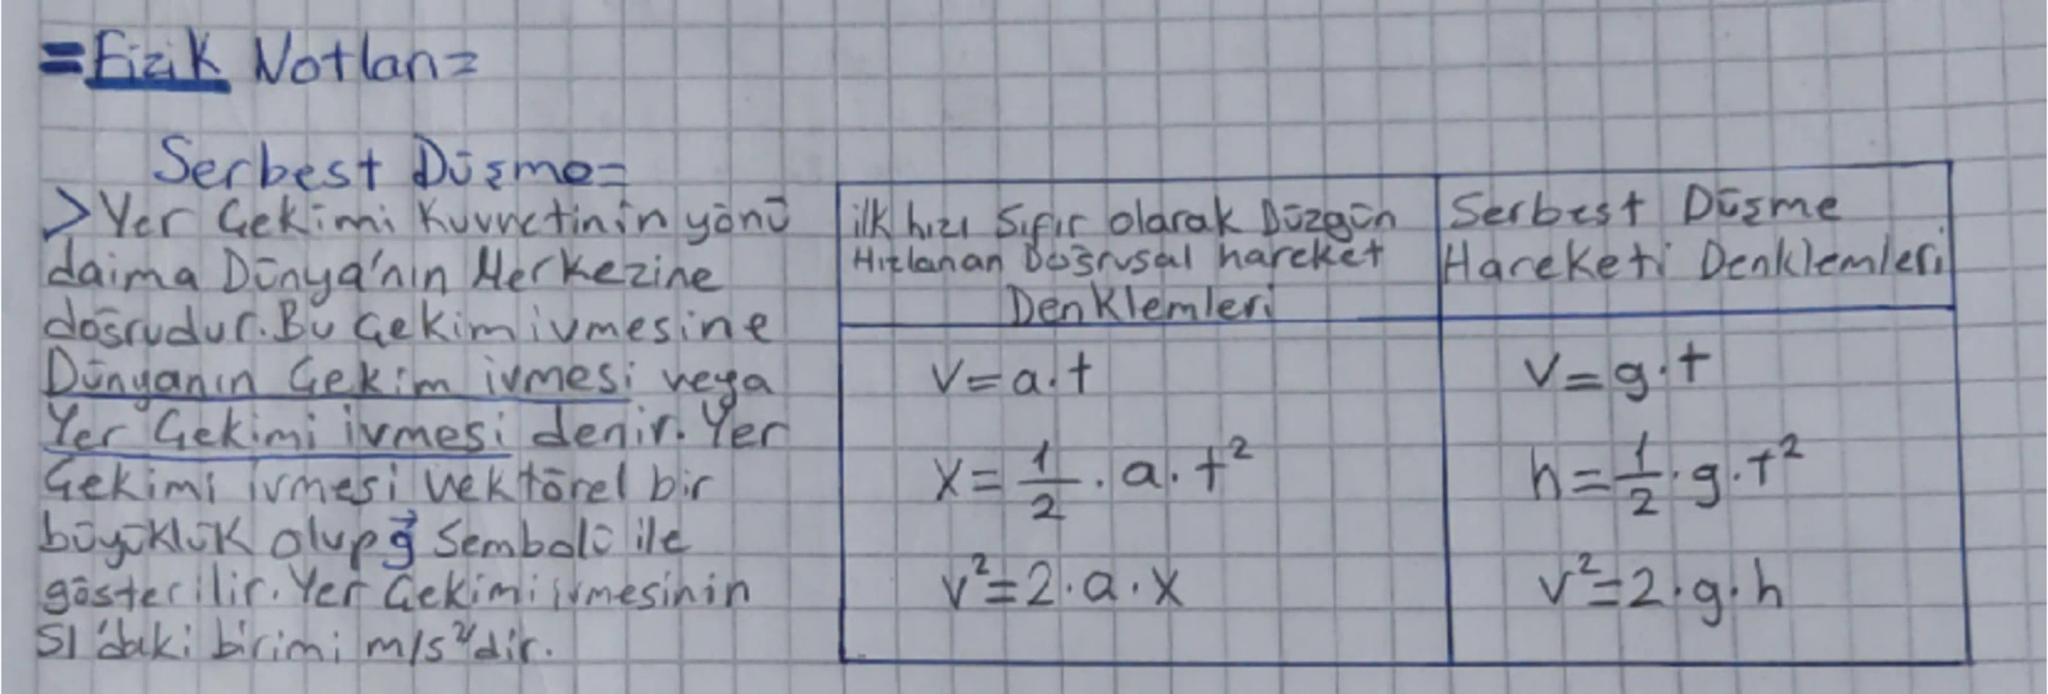 =Fizik Notları=
Serbest Düşme=
>Yer Çekimi Kuvvetinin yönü
daima Dünya'nın Merkezine
doğrudur. Bu Çekim ivmesine
Dünyanın Çekim ivmesi veya
Yer Çekimi ivmesi denir. Yer
Çekimi ivmesi vektörel bir
büyüklük olup g⃗ Sembolü ile
gösterilir. Yer Çekimi ivmesinin
SI'daki birimi m/s²'dir.
ilk hızı Sıfır olarak Düzgün
Hızlanan Doğrusal hareket
Denklemleri
V=a.t
x=1/2.a.t²
v²=2.a.x
Serbest Düşme
Hareketi Denklemleri
V=g.t
h=1/2.g.t²
v²=2.g.h